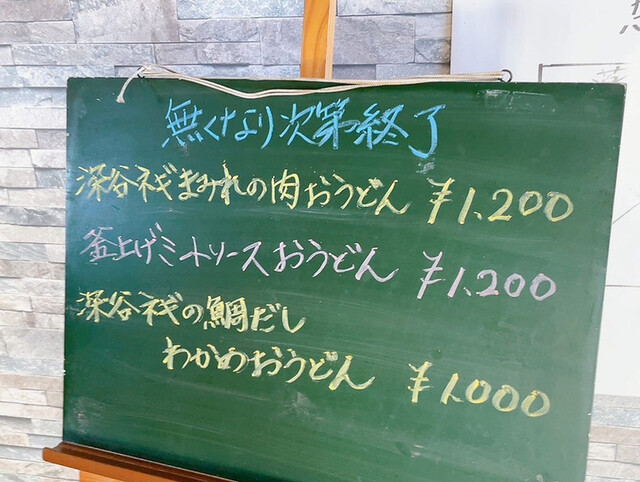 無くなり次第終了
深谷ネギまみれの肉おうどん ¥1,200
釜上げミートソースおうどん ¥1,200
深谷ネギの鯛だし
わかめおうどん ¥1,000